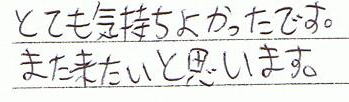 とても気持ちよかったです。
また来たいと思います。